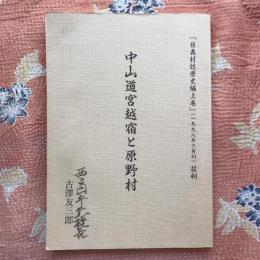 『日義村誌歴史編上巻』(一九九八年六月刊) 抜刷
中山道宮越宿と原野村
古澤友三郎